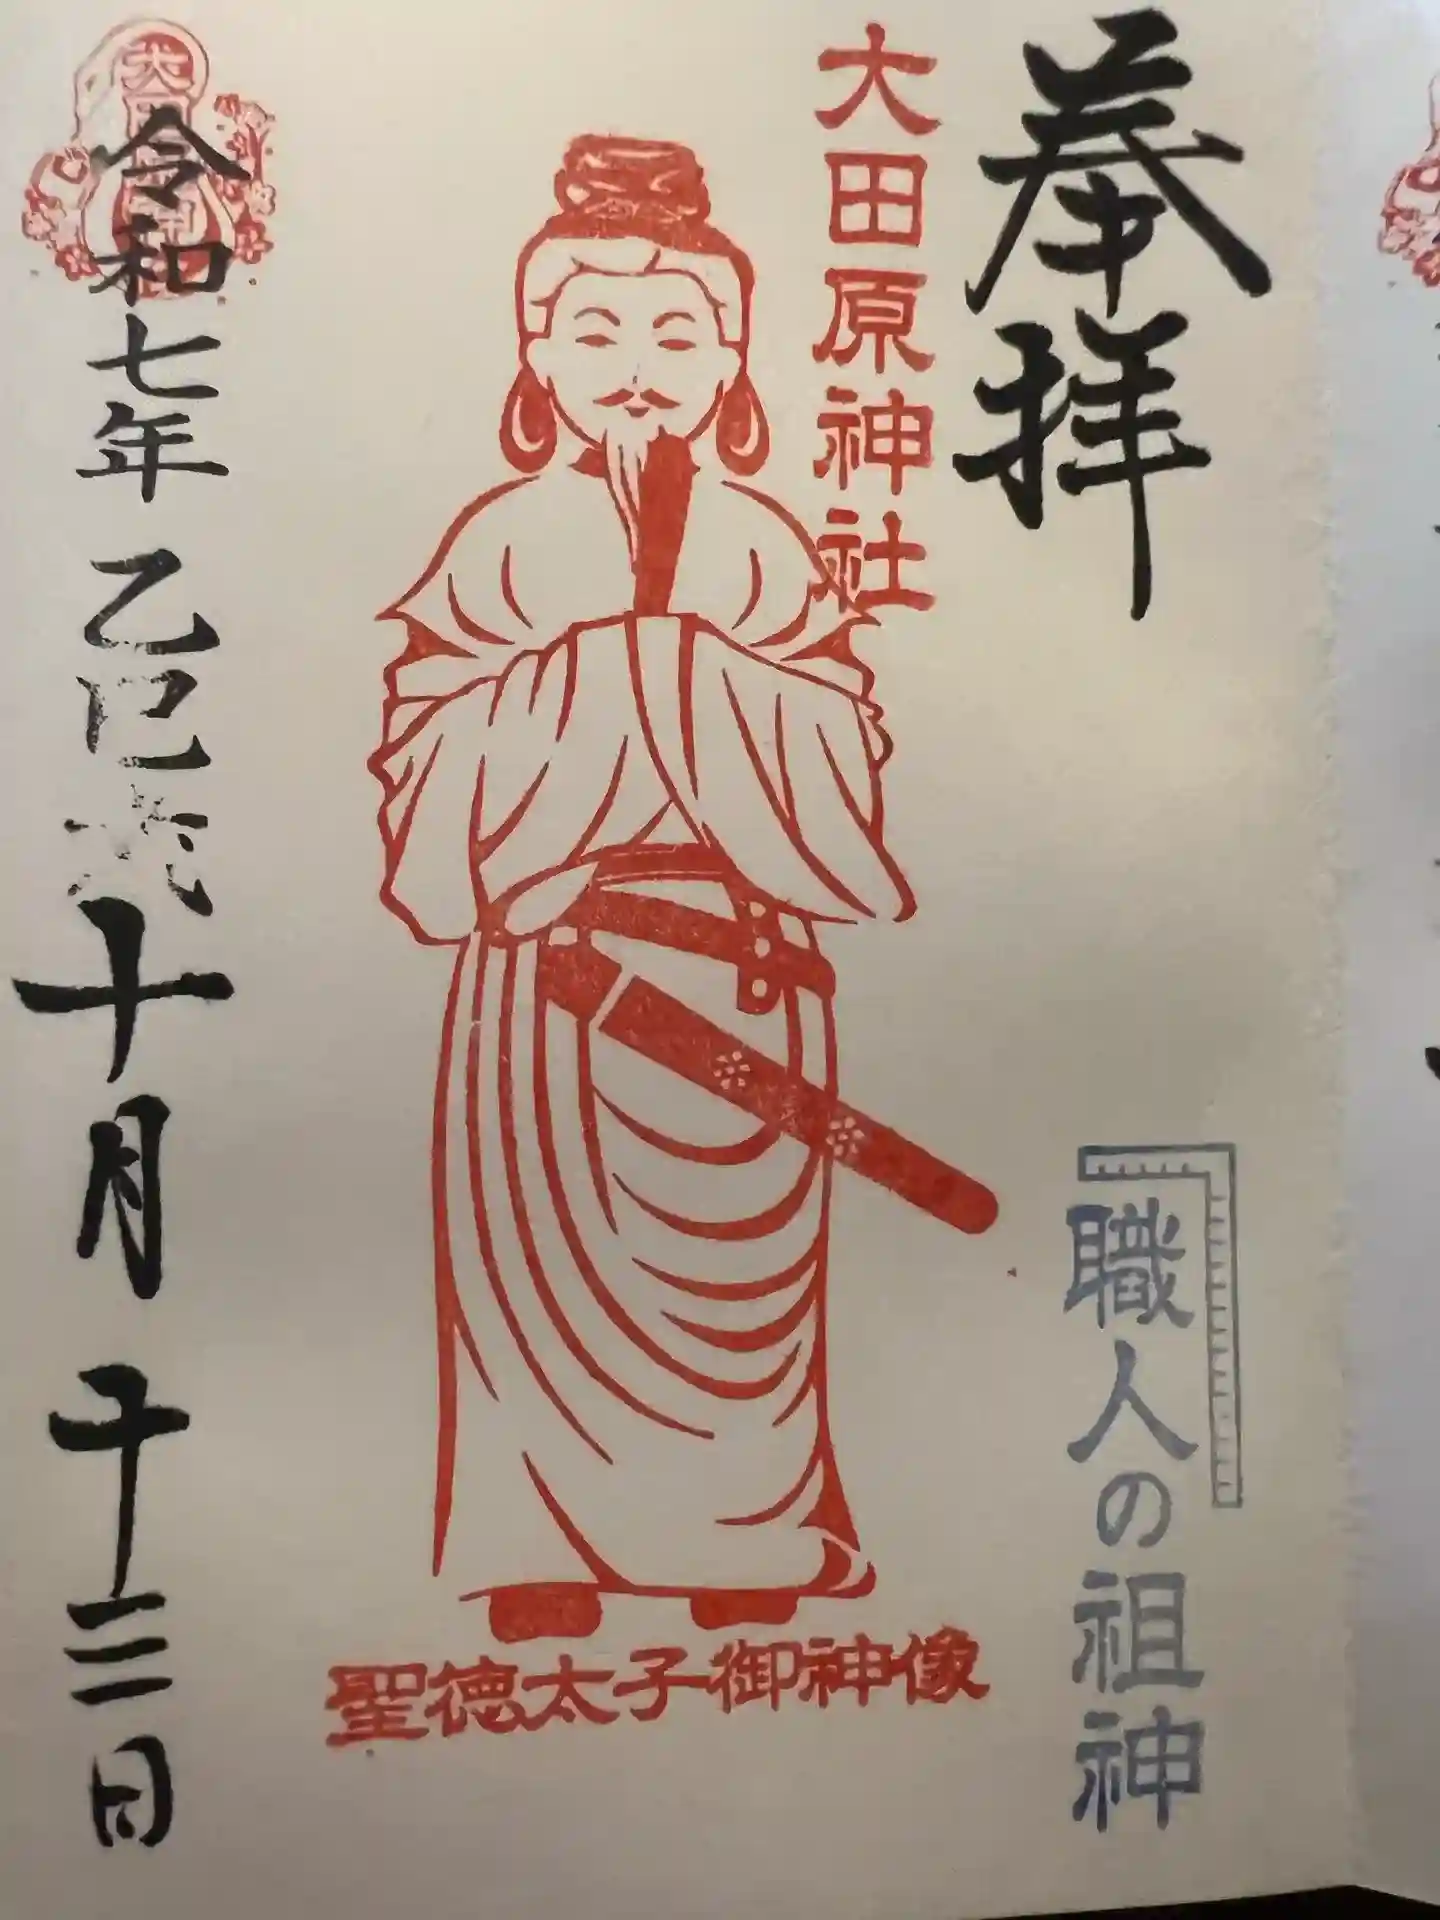 奉拝
大田原神社
職人の祖神
聖徳太子御神像
令和七年乙巳六十月十三日